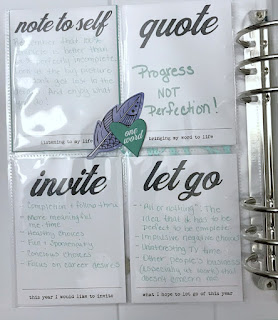 note to self
quote
better than
incomplete
big picture
And enjoy what
Progress
NOT
Perfection!
listening to my life
one word
bringing my word to life
invite
let go
- Completion + follow thru
- More meaningful
me-time
- Healthy Choices
- Fun + Spontaneity
- Conscious choices
- Focus on career desires
this year I would like to invite
- "All or nothing" - The
idea that it has to be
perfect to be complete
- Impulsive negative choices
- Uninteresting TV time
- Other people's business
(especially at work) that
doesn't concern me
what I hope to let go of this year